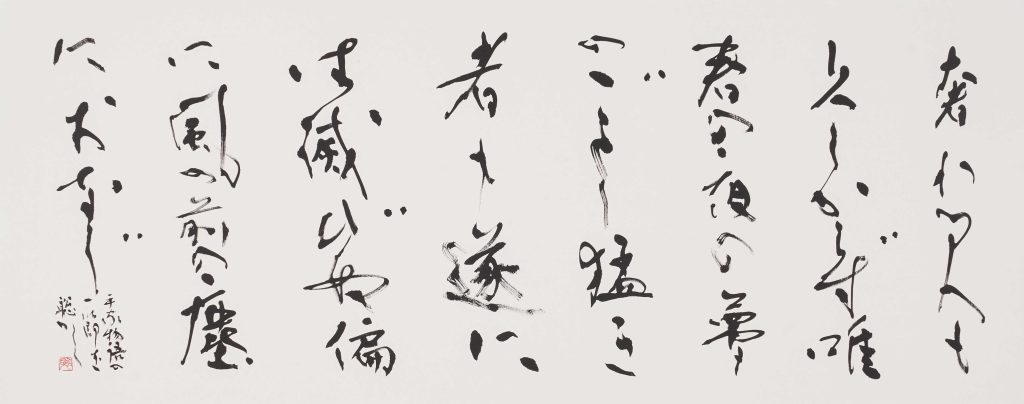 奢れる人も
久しからず唯
春の夜の夢
のごとし猛き
者も遂に
は滅びぬ偏
に風の前の塵
におなじ
平家物語の
一節
聡